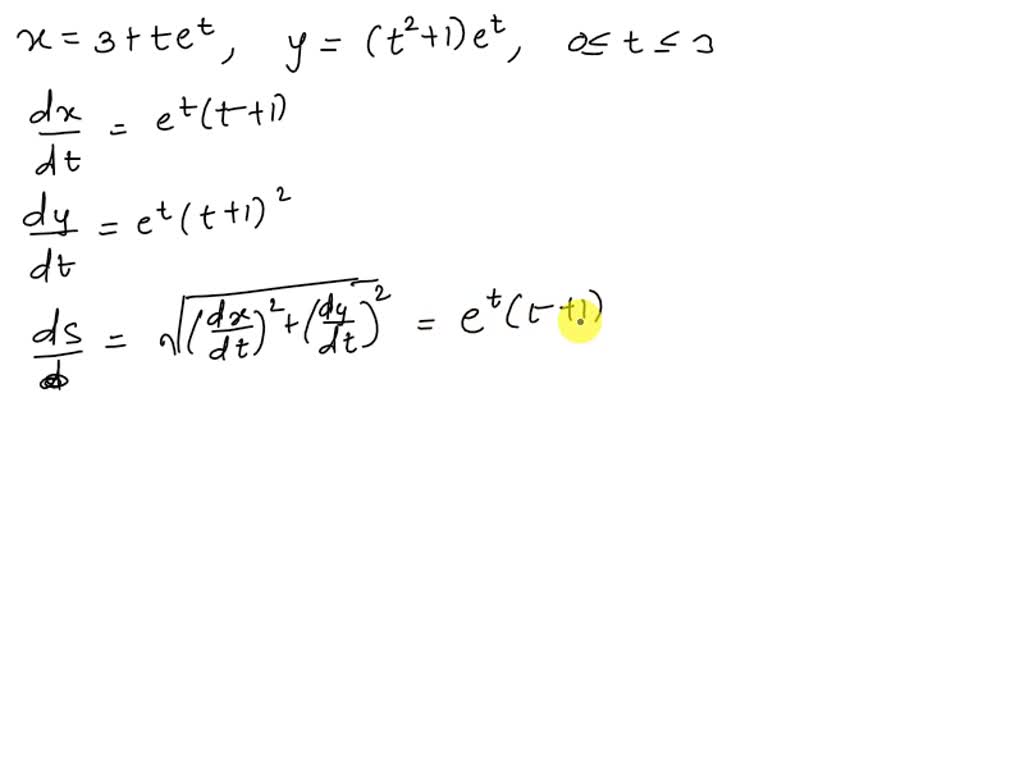 x = 3 + te^t, y = (t^2+1)e^t, 0 ≤ t ≤ 3
dx/dt = e^t(t+1)
dy/dt = e^t(t+1)^2
ds/d = √((dx/dt)^2 + (dy/dt)^2) = e^t(t+1)